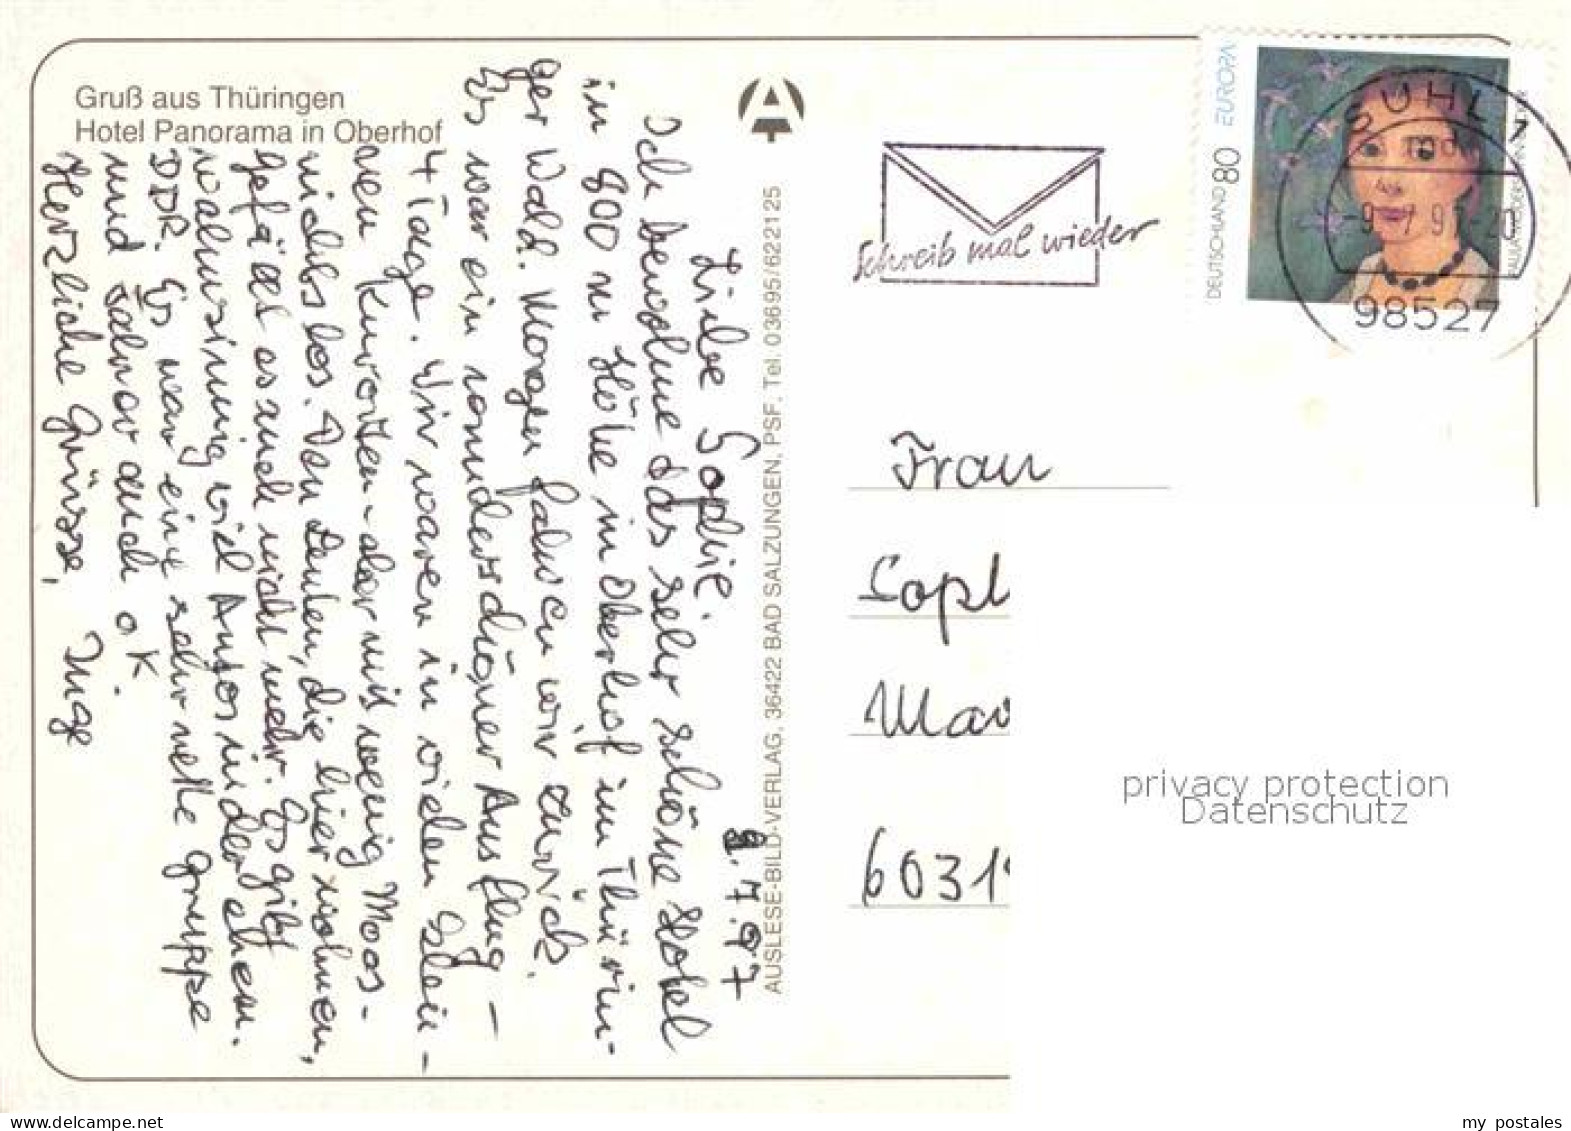 Gruß aus Thüringen
Hotel Panorama in Oberhof
8.7.97
Liebe Sophie.
Ich bewohne das sehr schöne Hotel
in 800 m Höhe in Oberhof im Thürin-
ger Wald. Morgen fahren wir zurück.
Es war ein wunderschöner Ausflug –
4 Tage. Wir waren in vielen klein-
en Kurorten – aber mit wenig Moos –
nichts los. Den Leuten, die hier wohnen,
gefällt es auch nicht mehr. Es gibt
wahnsinnig viel Autos in der ehem.
DDR. Es war eine sehr nette Gruppe
und Fahrer auch o.K.
Herzliche Grüsse, Inge
AUSLESE-BILD-VERLAG, 36422 BAD SALZUNGEN, PSF, Tel. 03695/622125
Schreib mal wieder
DEUTSCHLAND 80 EUROPA
SUHL 1
-9.-7.97-20
98527
Frau
Soph
Mar
6031
privacy protection
Datenschutz
www.delcampe.net
my_postales